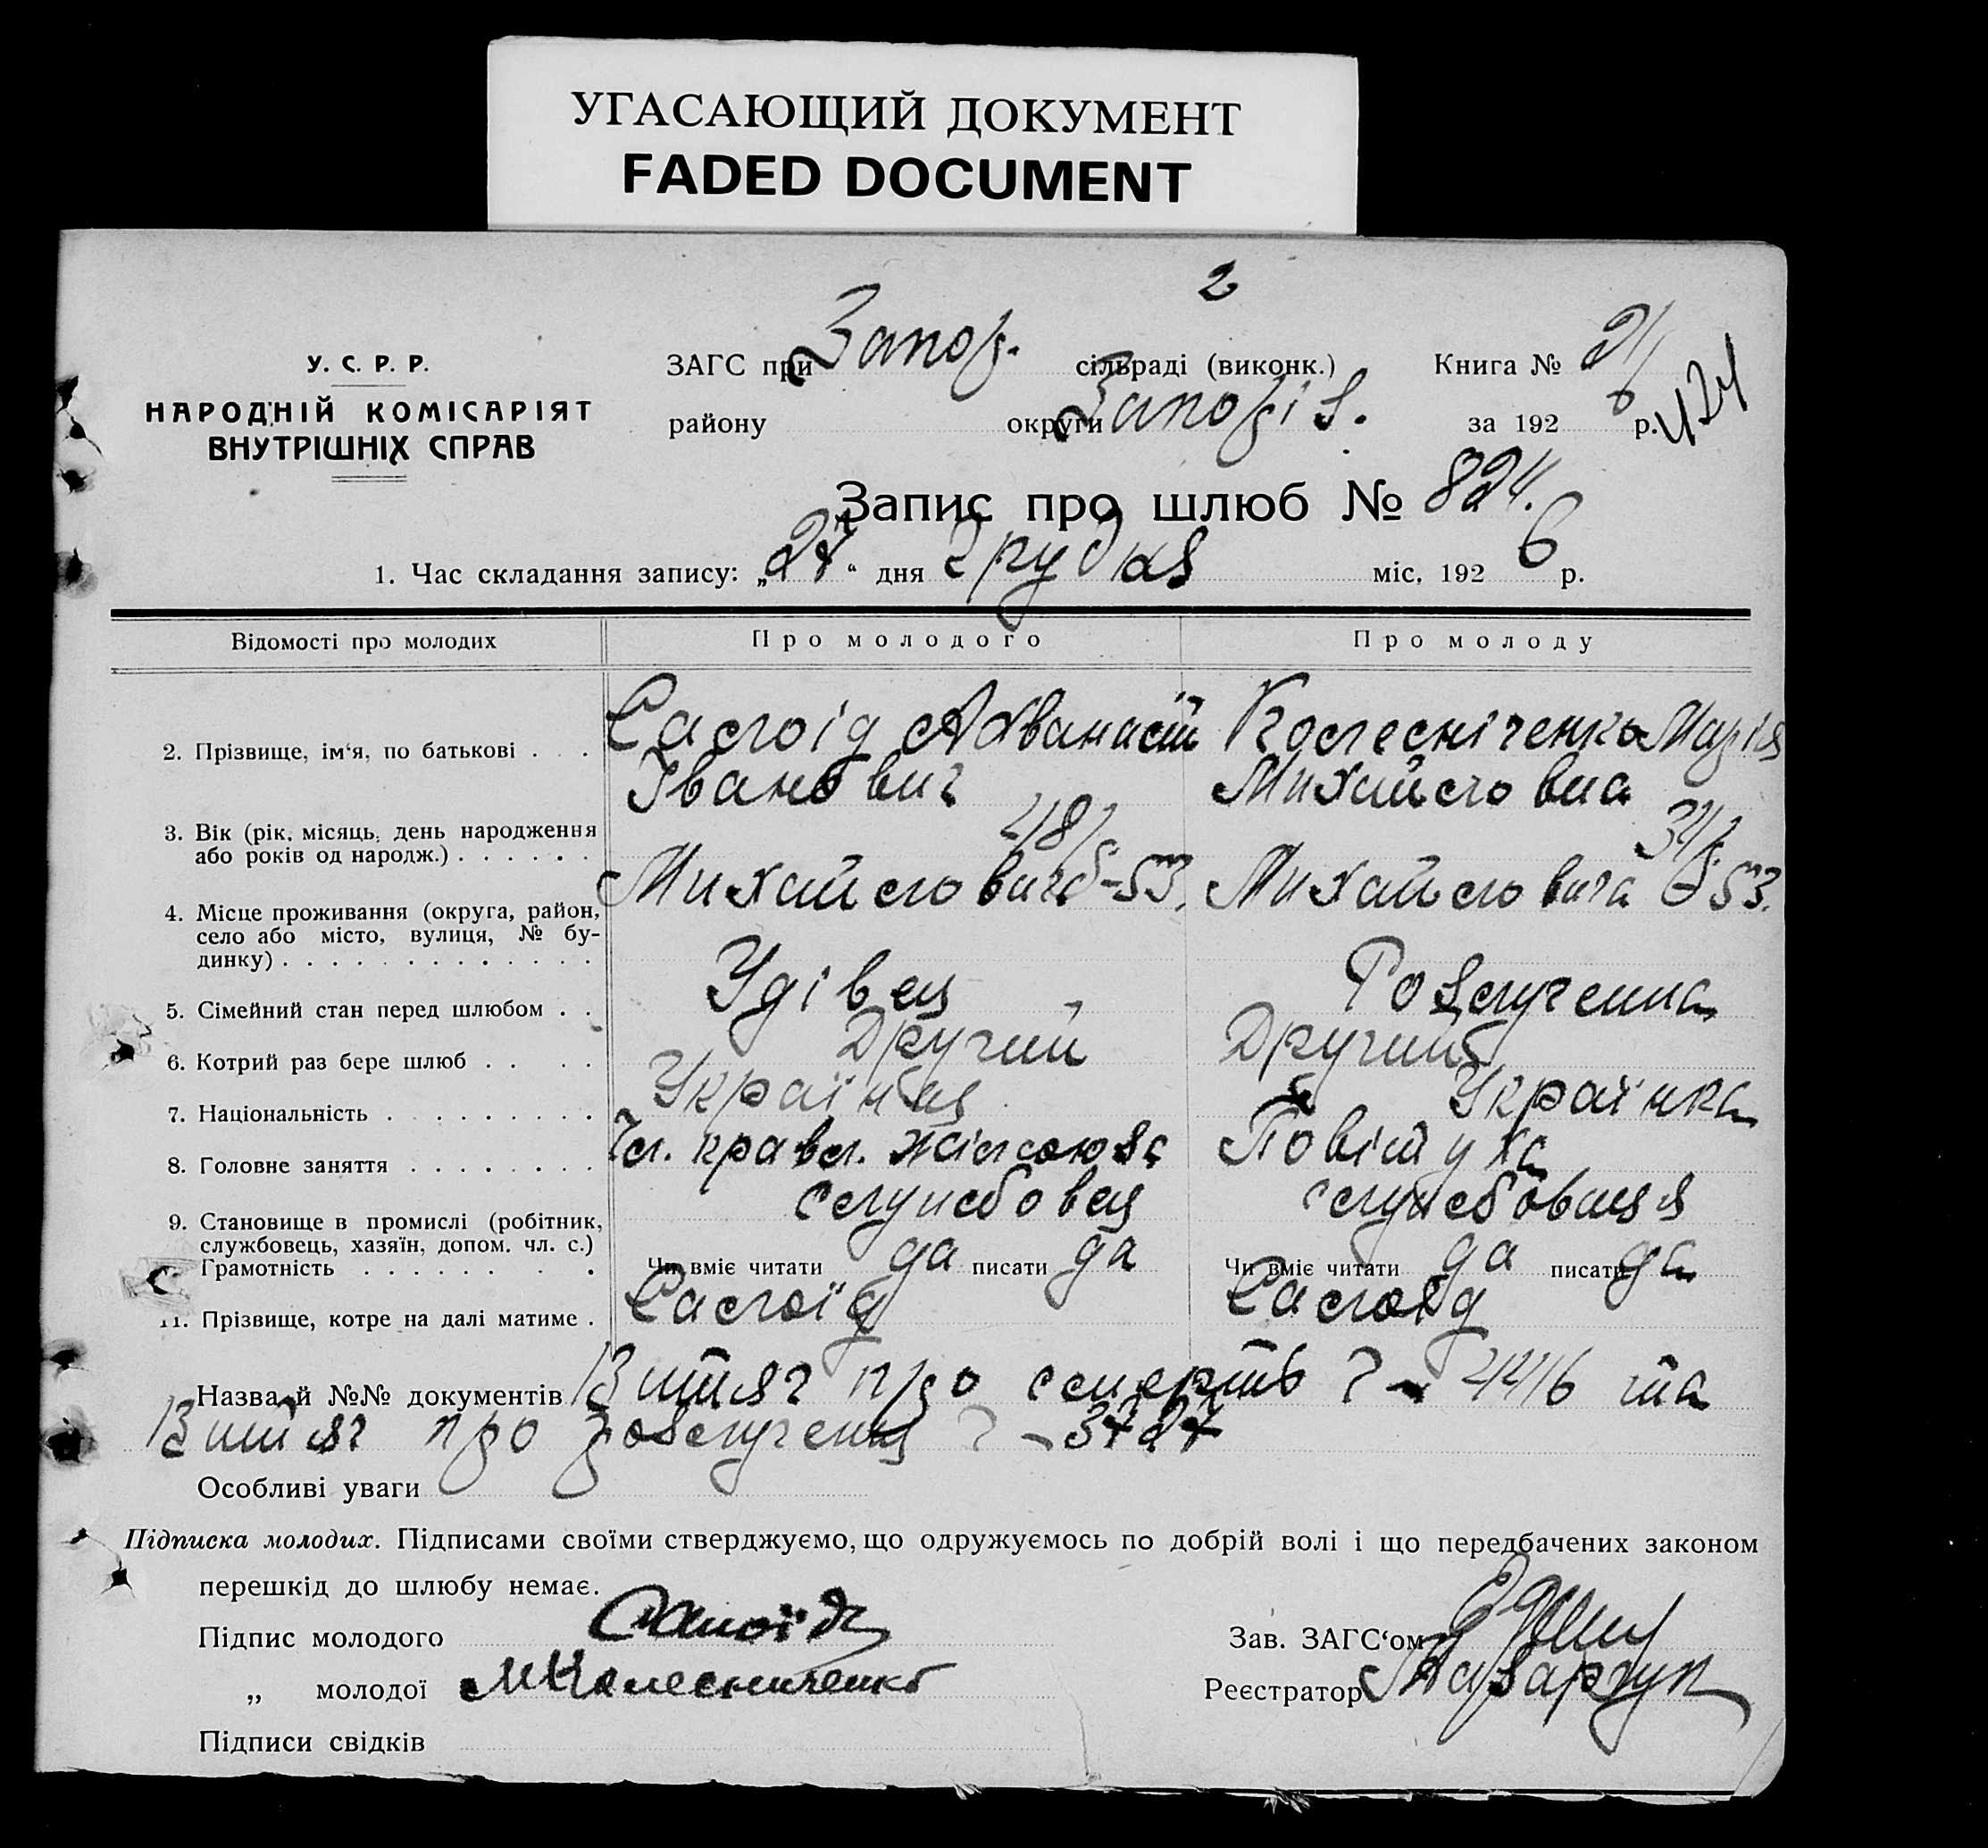 УГАСАЮЩИЙ ДОКУМЕНТ
FADED DOCUMENT
2
У. С. Р. Р.
НАРОДНІЙ КОМІСАРІЯТ
ВНУТРІШНІХ СПРАВ
ЗАГС при Запоріз. сільраді (виконк.) Книга №
району округи Запоріз. за 1926 р.
424
Запис про шлюб № 824.
1. Час складання запису: „27“ дня Грудня міс. 1926 р.
Відомості про молодих Про молодого Про молоду
2. Прізвище, ім‘я, по батькові . . . Салоїд Афванасій Колесніченко Марія
Іванович Михайловна
3. Вік (рік, місяць, день народження
або років од народж.) . . . . . . 48 34
4. Місце проживання (округа, район,
село або місто, вулиця, № будинку) . . . . . . . . . . . . . Михайловича 53. Михайловича 53.
5. Сімейний стан перед шлюбом . . Удівець Розлученна
6. Котрий раз бере шлюб . . . . Другий Другий
7. Національність . . . . . . . . . Українець Українка
8. Головне заняття . . . . . . . . Чл. правл. жілсоюза Повітуха
9. Становище в промислі (робітник,
службовець, хазяїн, допом. чл. с.) службовець службовиця
Грамотність . . . . . . . . Чи вміє читати да писати да Чи вміє читати да писати да
11. Прізвище, котре на далі матиме . Салоїд Салоїд
Назва й №№ документів Витяг про смерть 4416 та
Витяг про розлучення 3727
Особливі уваги
Підписка молодих. Підписами своїми стверджуємо, що одружуємось по добрій волі і що передбачених законом
перешкід до шлюбу немає.
Підпис молодого Салоїд Зав. ЗАГС‘ом
„ молодої М Колесниченко Реєстратор
Підписи свідків